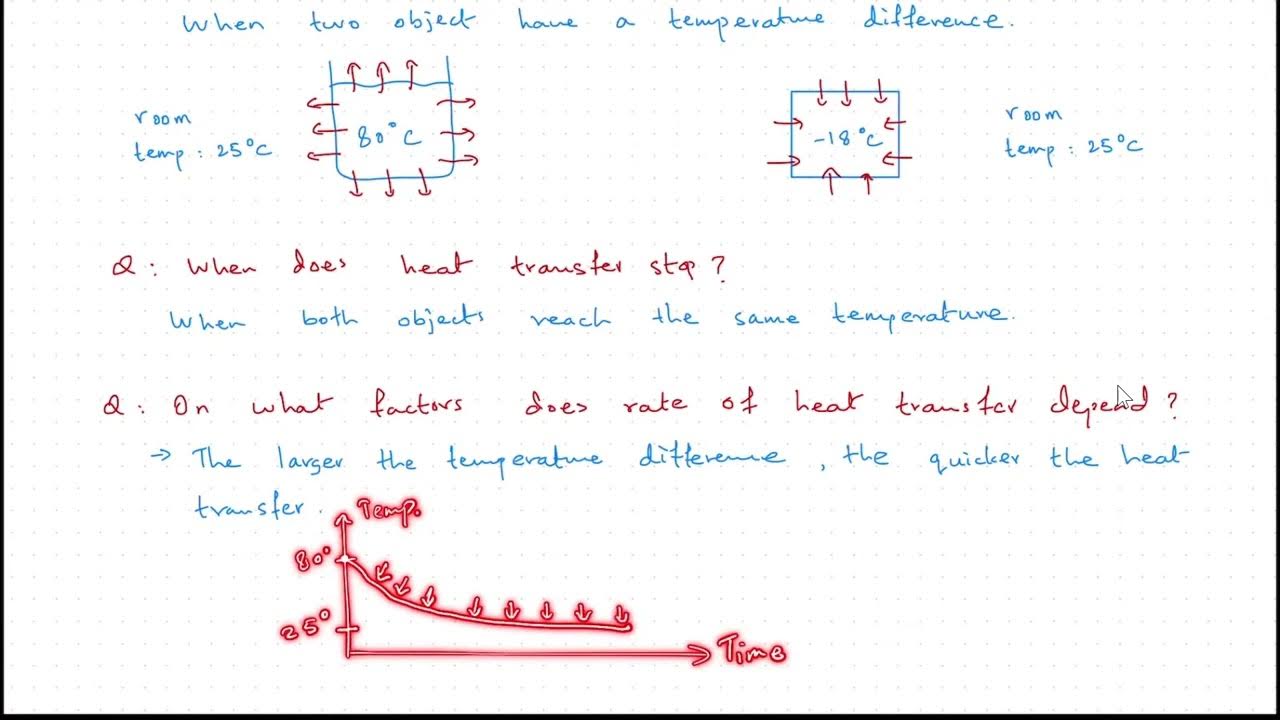 When two object have a temperature difference.
room
temp : 25°C
80°C
-18°C
room
temp : 25°C
Q : When does heat transfer stop?
When both objects reach the same temperature.
Q : On what factors does rate of heat transfer depend ?
→ The larger the temperature difference, the quicker the heat
transfer.
Temp.
80°
25°
Time